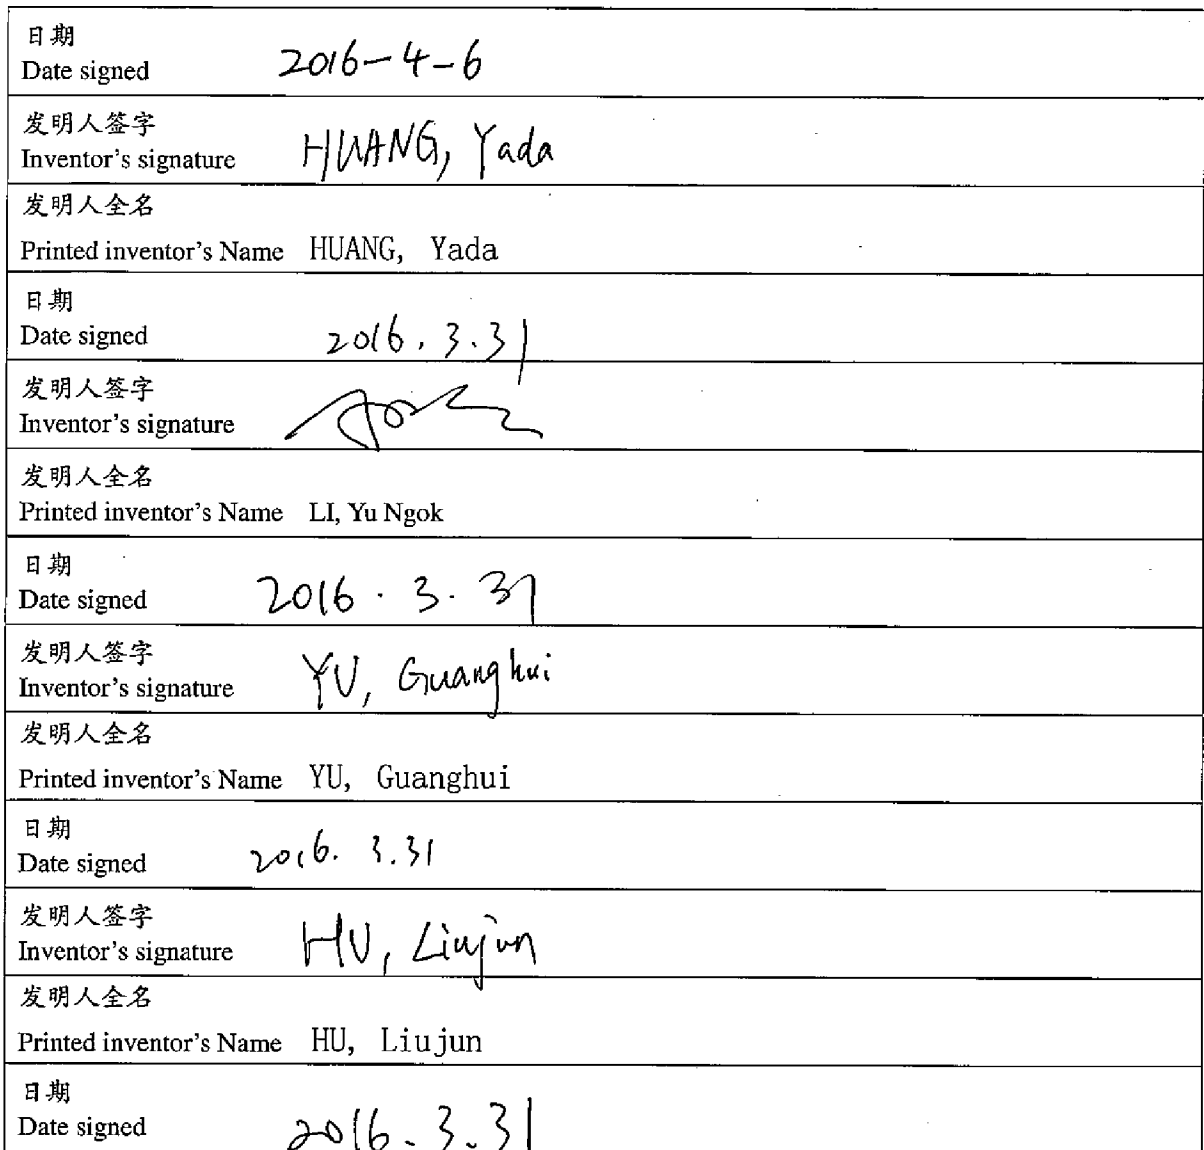 日期
Date signed 2016-4-6
发明人签字
Inventor's signature HUANG, Yada
发明人全名
Printed inventor's Name HUANG, Yada
日期
Date signed 2016.3.31
发明人签字
Inventor's signature
发明人全名
Printed inventor's Name LI, Yu Ngok
日期
Date signed 2016.3.31
发明人签字
Inventor's signature YU, Guanghui
发明人全名
Printed inventor's Name YU, Guanghui
日期
Date signed 2016.3.31
发明人签字
Inventor's signature HU, Liujun
发明人全名
Printed inventor's Name HU, Liujun
日期
Date signed 2016.3.31